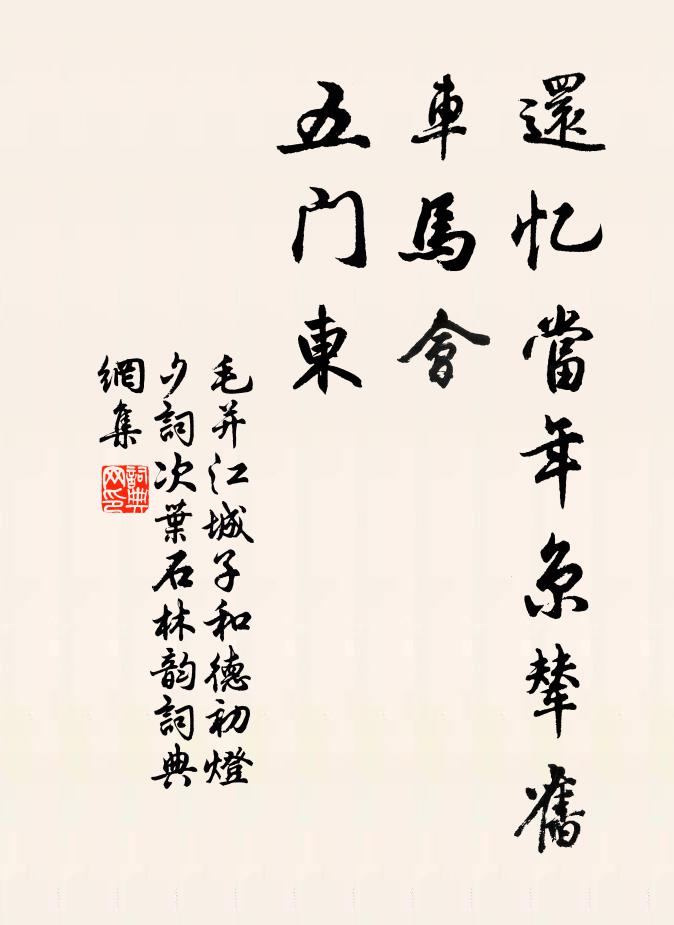 還忆當年京輦舊
車馬會
五门東
毛并江城子和德初燈
夕詞次葉石林韵詞典
網集
詞典
网印